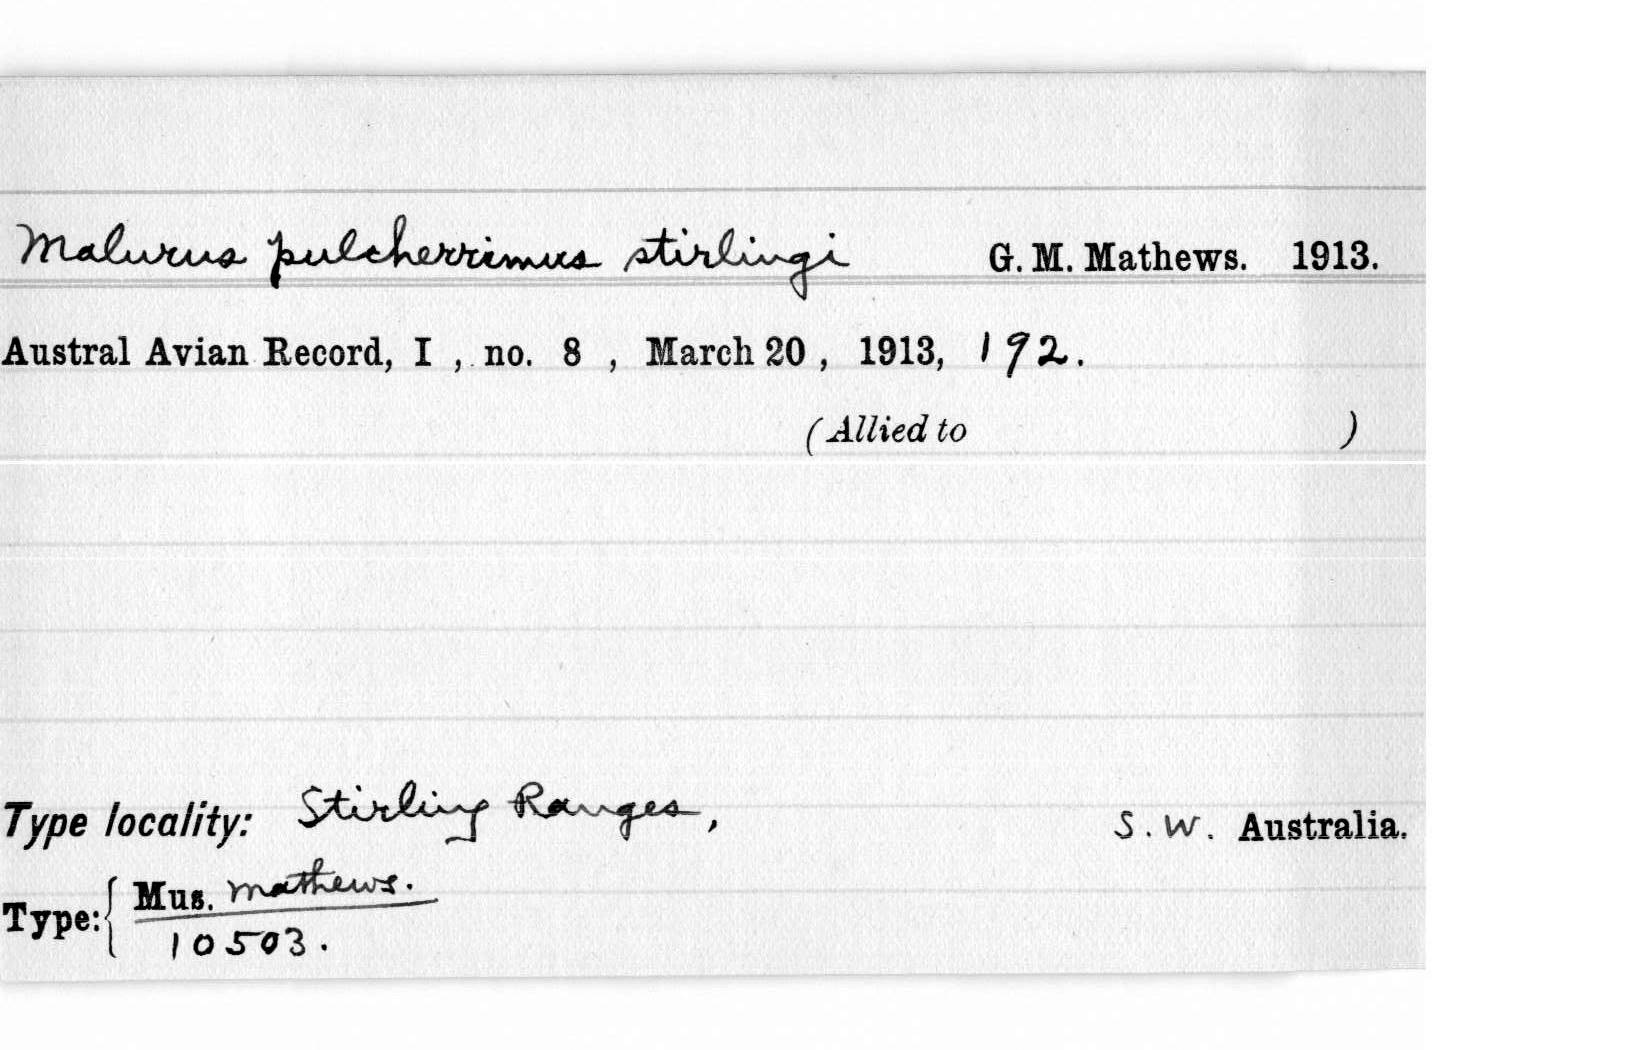 Malurus pulcherrimus stirlingi G. M. Mathews. 1913.
Austral Avian Record, I , no. 8 , March 20 , 1913, 192.
(Allied to )
Type locality: Stirling Ranges, S. W. Australia.
Type: { Mus. Mathews.
10503.